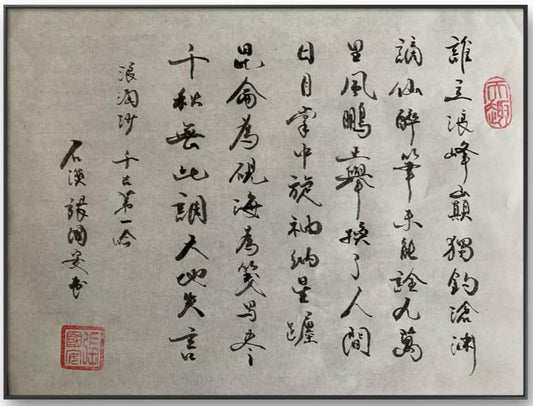 天趣
誰立浪峰巔獨釣滄淵
謫仙醉筆未能詮九萬
里風鵬正舉換了人間
日月掌中旋袖納星躔
昆侖為硯海為箋寫盡
千秋無此調天地失言
浪淘沙 千古第一哈
石 張國安书
張國安